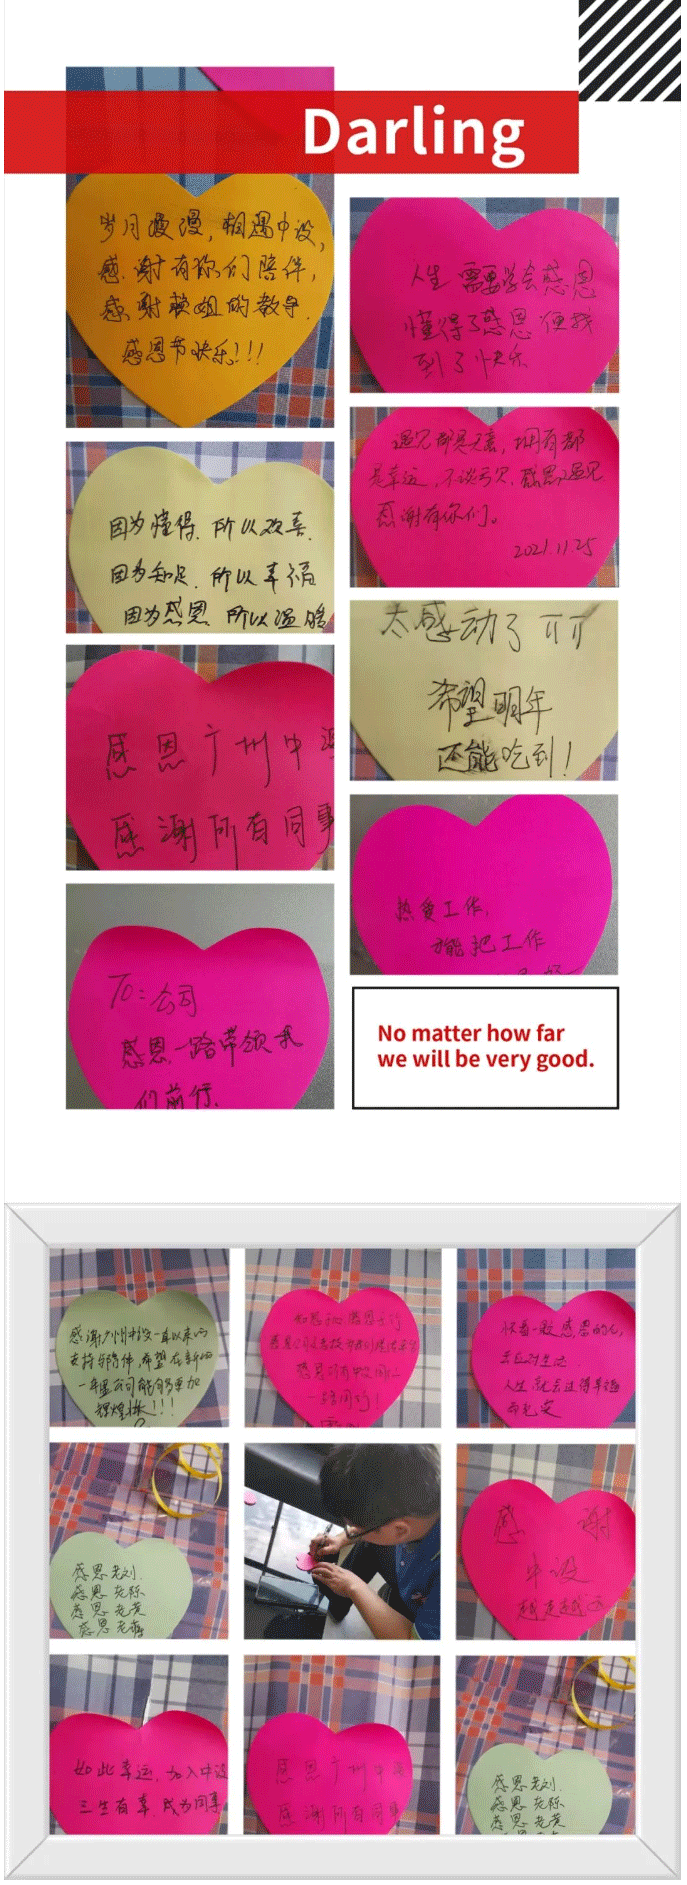 Darling
岁月漫漫,相遇中设,
感谢有你们陪伴,
感谢赖姐的教导.
感恩节快乐!!!
人生需要学会感恩
懂得了感恩便找
到了快乐
因为懂得.所以欢喜.
因为知足.所以幸福
因为感恩.所以温暖
遇见都是天意,拥有都
是幸运,不谈亏欠,感恩遇见
感谢有你们。
2021.11.25
感恩广州中设
感谢所有同事
太感动了 TT
希望明年
还能吃到!
To:公司
感恩一路带领我
们前行.
热爱工作,
才能把工作
No matter how far
we will be very good.
感谢广州中设一年以来的
支持与陪伴,希望在新的
一年里公司能够更加
辉煌!!!
怀着一颗感恩的心,
去应对生活
人生就会过得幸福
而充实
感恩老刘.
感恩老陈
感恩老黄
感恩老
感 谢
中设
越走越远
如此幸运,加入中设
三生有幸,成为同事
感恩广州中设
感谢所有同事
感恩老刘.
感恩老陈
感恩老黄